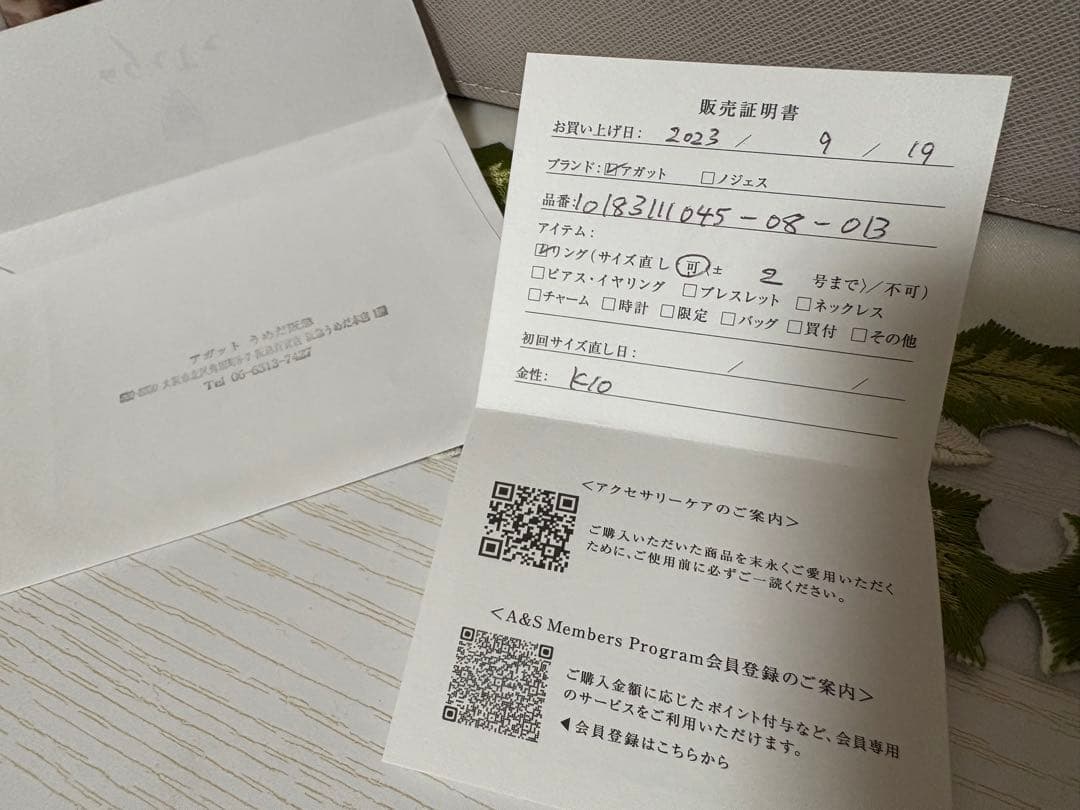 アガット うめだ阪急
Tel 06-6313-7427
販売証明書
お買い上げ日: 2023 / 9 / 19
ブランド: ☑アガット □ノジェス
品番: 10183111045-08-013
アイテム:
☑リング(サイズ直し 可(± 2 号まで)/不可)
□ピアス・イヤリング □ブレスレット □ネックレス
□チャーム □時計 □限定 □バッグ □買付 □その他
初回サイズ直し日: / /
金性: K10
<アクセサリーケアのご案内>
ご購入いただいた商品を末永くご愛用いただく
ために、ご使用前に必ずご一読ください。
<A&S Members Program会員登録のご案内>
ご購入金額に応じたポイント付与など、会員専用
のサービスをご利用いただけます。
◀会員登録はこちらから